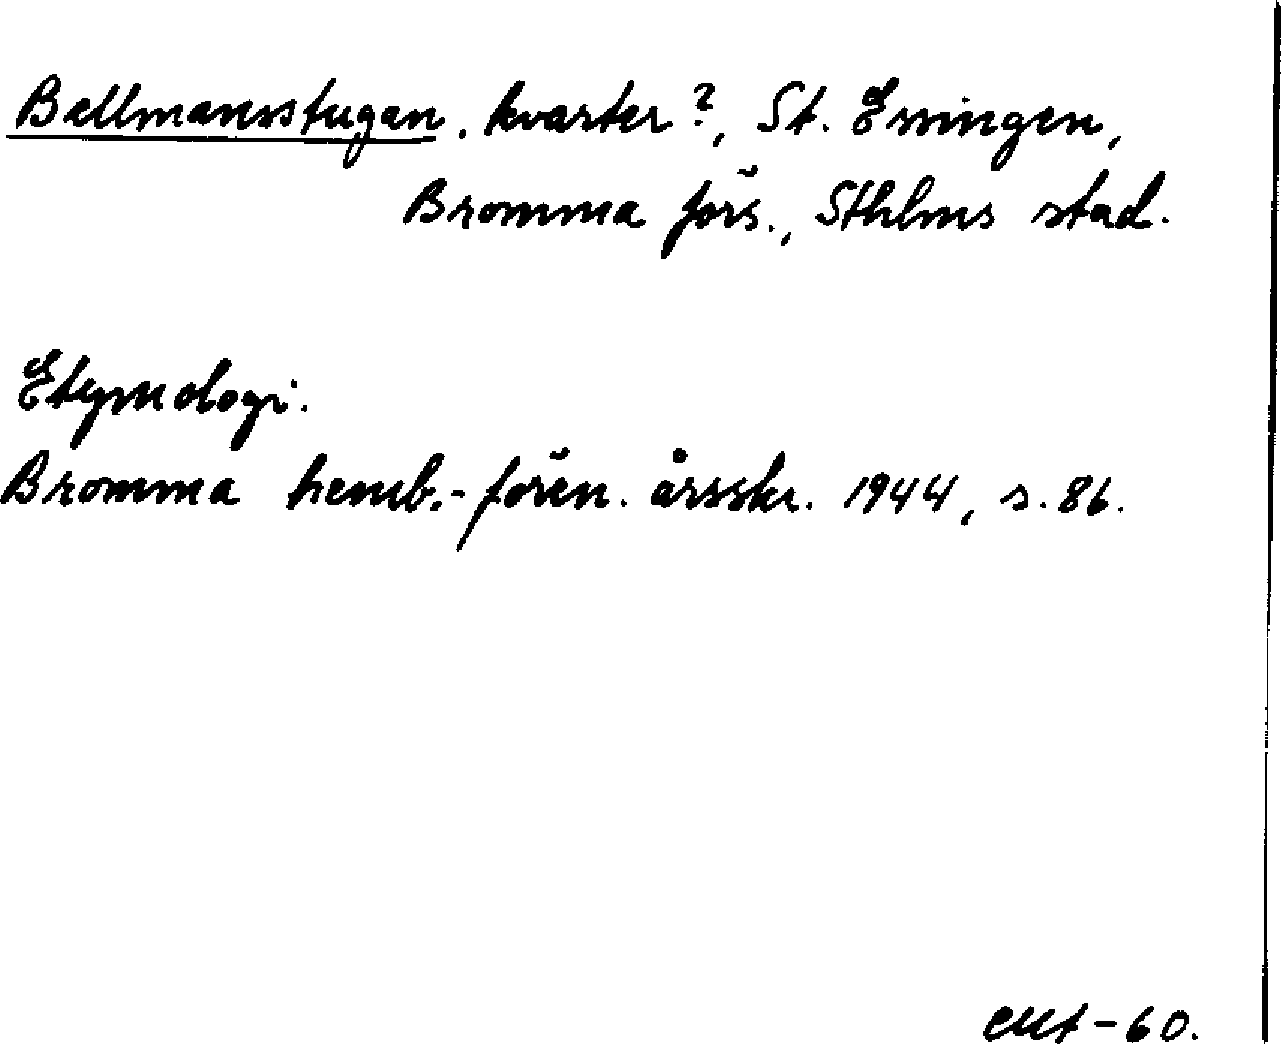 Bellmansstugan, kvarter?, St. Essingen,
Bromma förs., Sthlms stad.
Etymologi.
Bromma hemb.-fören. årsskr. 1944, s. 86.
-60.